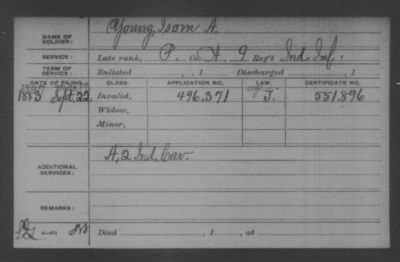 NAME OF SOLDIER: Young, Isom A.
SERVICE: Late rank, P. Co. A, 9 Reg't Ind. Inf.
TERM OF SERVICE: Enlisted , 1 Discharged , 1
DATE OF FILING. CLASS. APPLICATION NO. LAW. CERTIFICATE NO.
1883 Sept. 22 Invalid, 496.371 J. 551.896
Widow,
Minor,
ADDITIONAL SERVICES: A, 2 Ind. Cav.
REMARKS:
Died , 1 , at